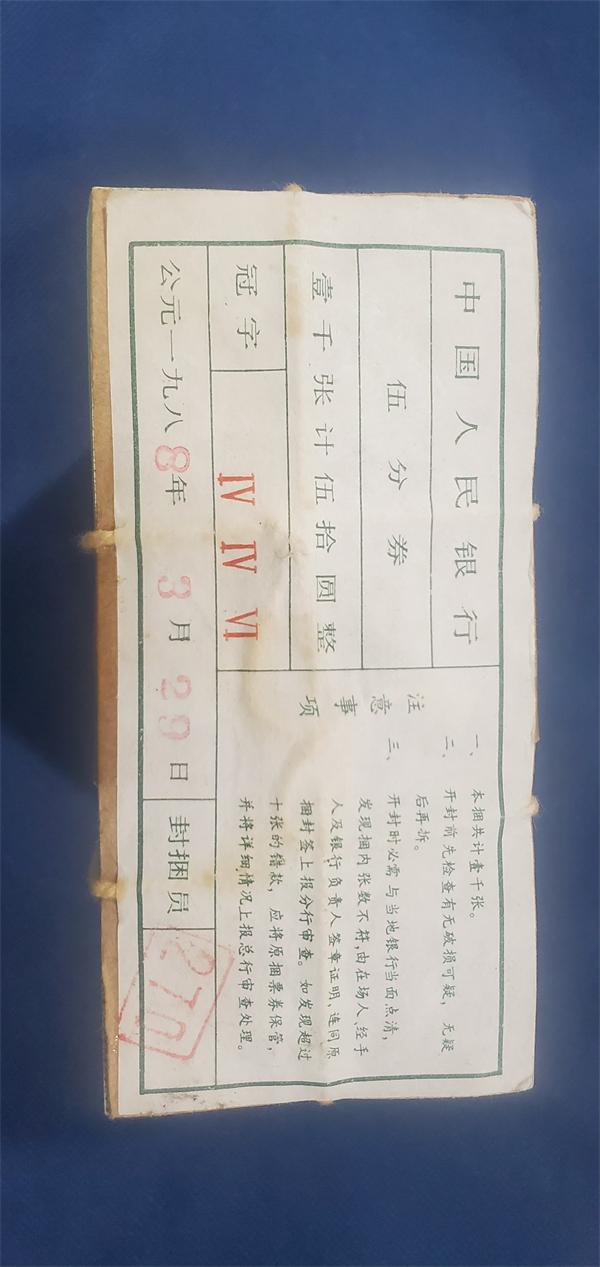 中国人民银行
伍分券
壹千张计伍拾圆整
冠字 IV IV VI
公元一九八8年 3月 29日 封捆员
注意事项
一、本捆共计壹千张。
二、开封前先检查有无破损可疑，无疑
后再拆。
三、开封时必需与当地银行当面点清，
发现捆内张数不符，由在场人、经手
人及银行负责人签章证明，连同原
捆封签上报分行审查。如发现超过
十张的错款，应将原捆票券保管，
并将详细情况上报总行审查处理。